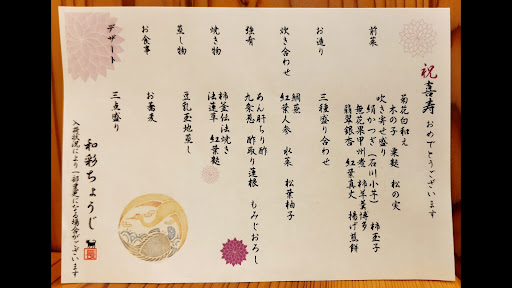 祝 喜寿 おめでとうございます
前菜
菊花白和え
木の子 栗麩 松の実
吹き寄せ盛り
絹かつぎ(石川小芋) 柿玉子
無花果甲州煮 柿羊羹博多
翡翠銀杏 紅葉真丈 揚げ煎餅
お造り
三種盛り合わせ
炊き合わせ
鯛蕪
紅葉人参 水菜 松葉柚子
強肴
あん肝ちり酢
九条葱 酢取り蓮根 もみじおろし
焼き物
柿釜伝法焼き
法蓮草 紅葉麩
蒸し物
豆乳玉地蒸し
お食事
お蕎麦
デザート
三点盛り
和彩ちょうじ
長
入荷状況により一部変更になる場合がございます